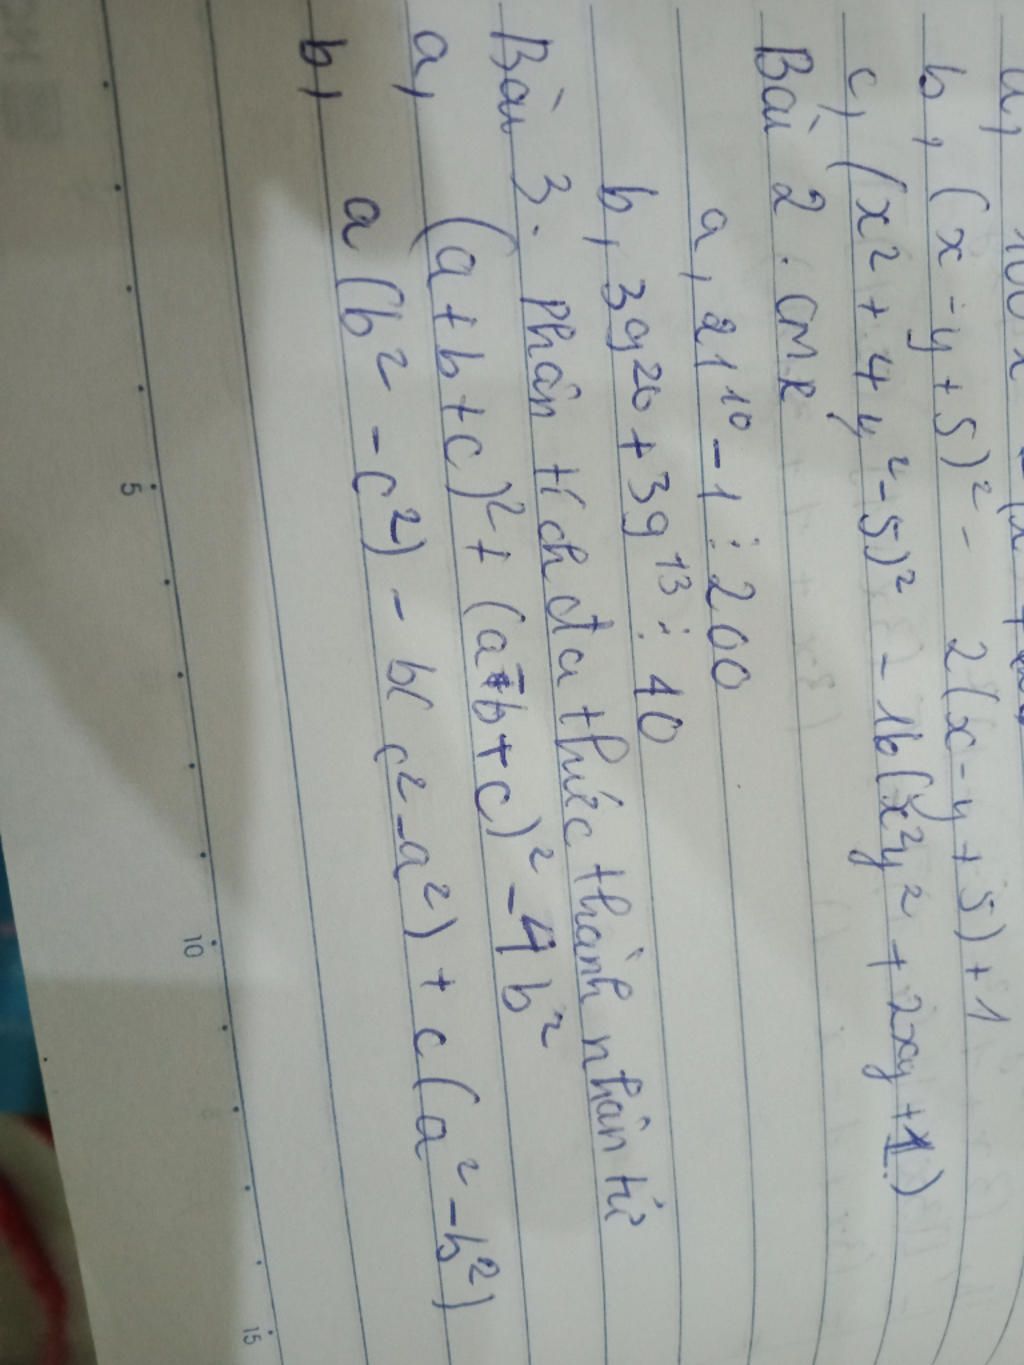 a,
b, (x - y + 5)² - 2(x - y + 5) + 1
c, (x² + 4y² - 5)² - 16(x²y² + 2xy + 1)
Bài 2. CMR
a, 21¹⁰ - 1 ⋮ 200
b, 39²⁰ + 39¹³ ⋮ 40
Bài 3. Phân tích đa thức thành nhân tử
a, (a + b + c)² + (a - b + c)² - 4b²
b, a(b² - c²) - b(c² - a²) + c(a² - b²)
5
10
15